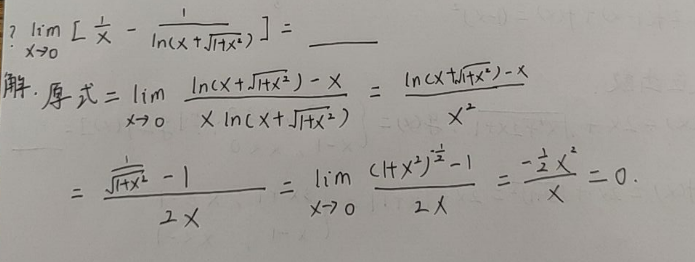 ? lim x→0 [ 1/x - 1/ln(x+√(1+x²)) ] = ____
解. 原式 = lim x→0 (ln(x+√(1+x²)) - x)/(x ln(x+√(1+x²))) = (ln(x+√(1+x²)) - x)/x²
= (1/√(1+x²) - 1)/(2x) = lim x→0 ((1+x²)^(-1/2) - 1)/(2x) = (-1/2 x²)/x = 0.